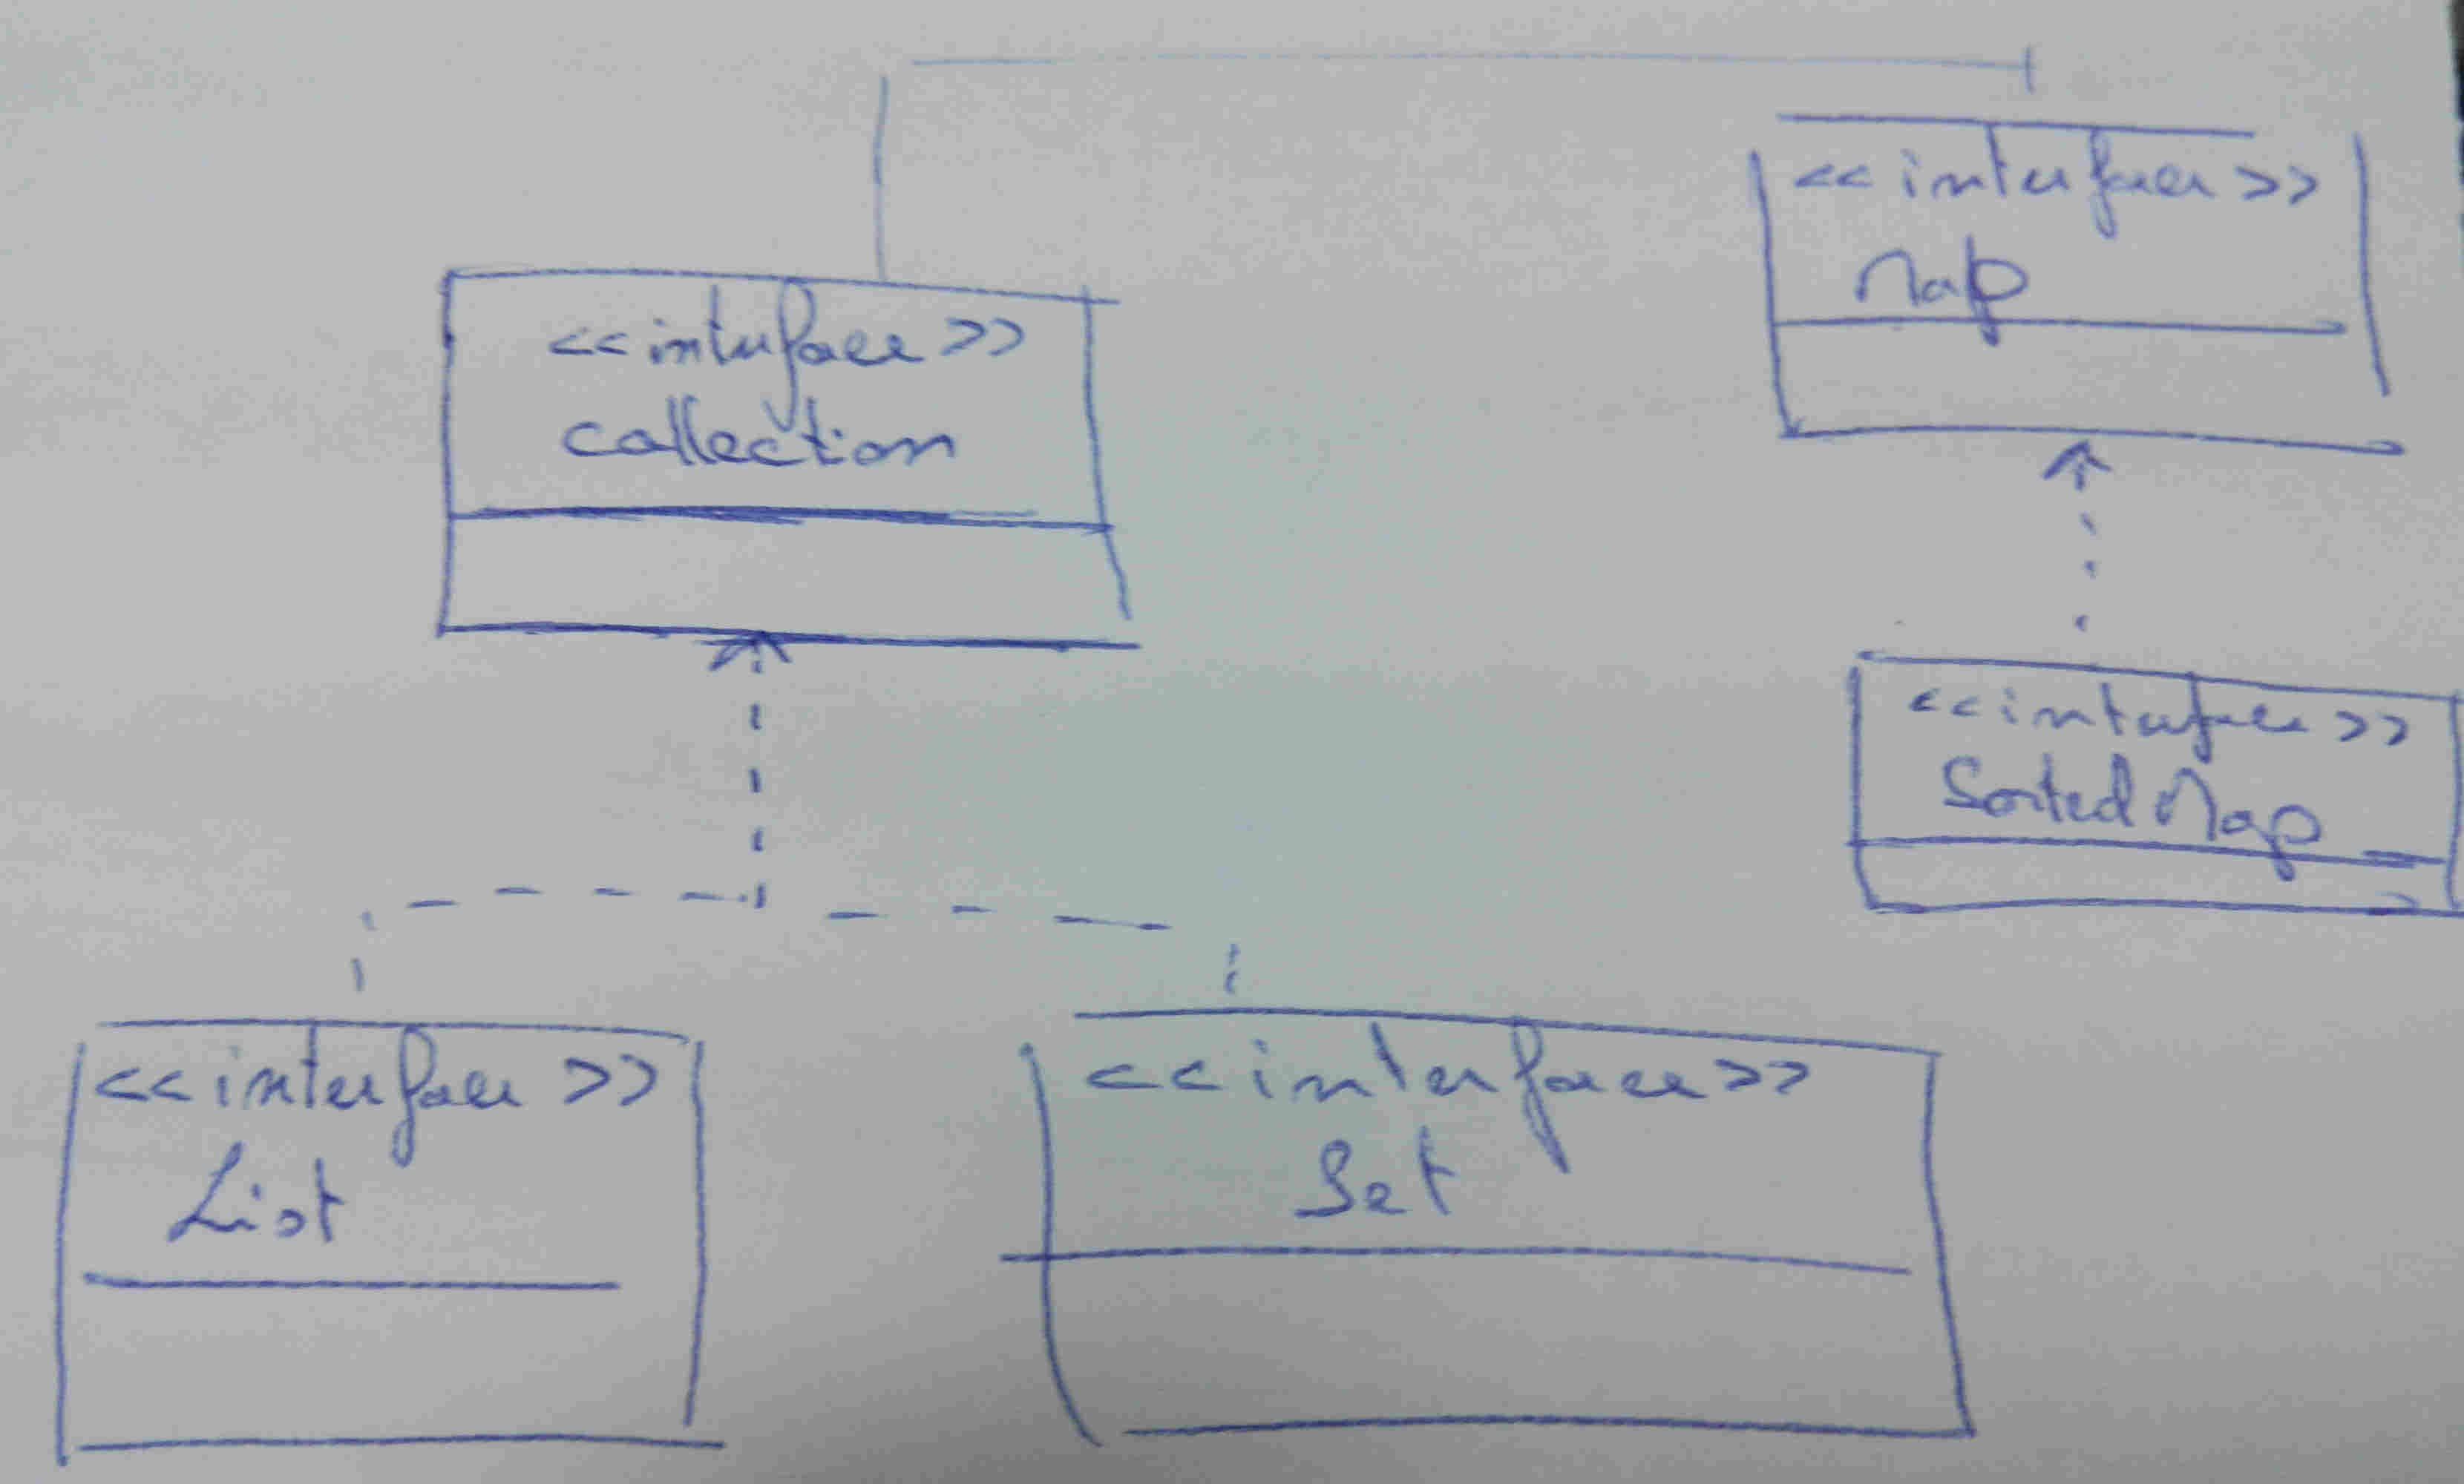 <<interface>>
Map
<<interface>>
collection
<<interface>>
Sorted Map
<<interface>>
List
<<interface>>
Set